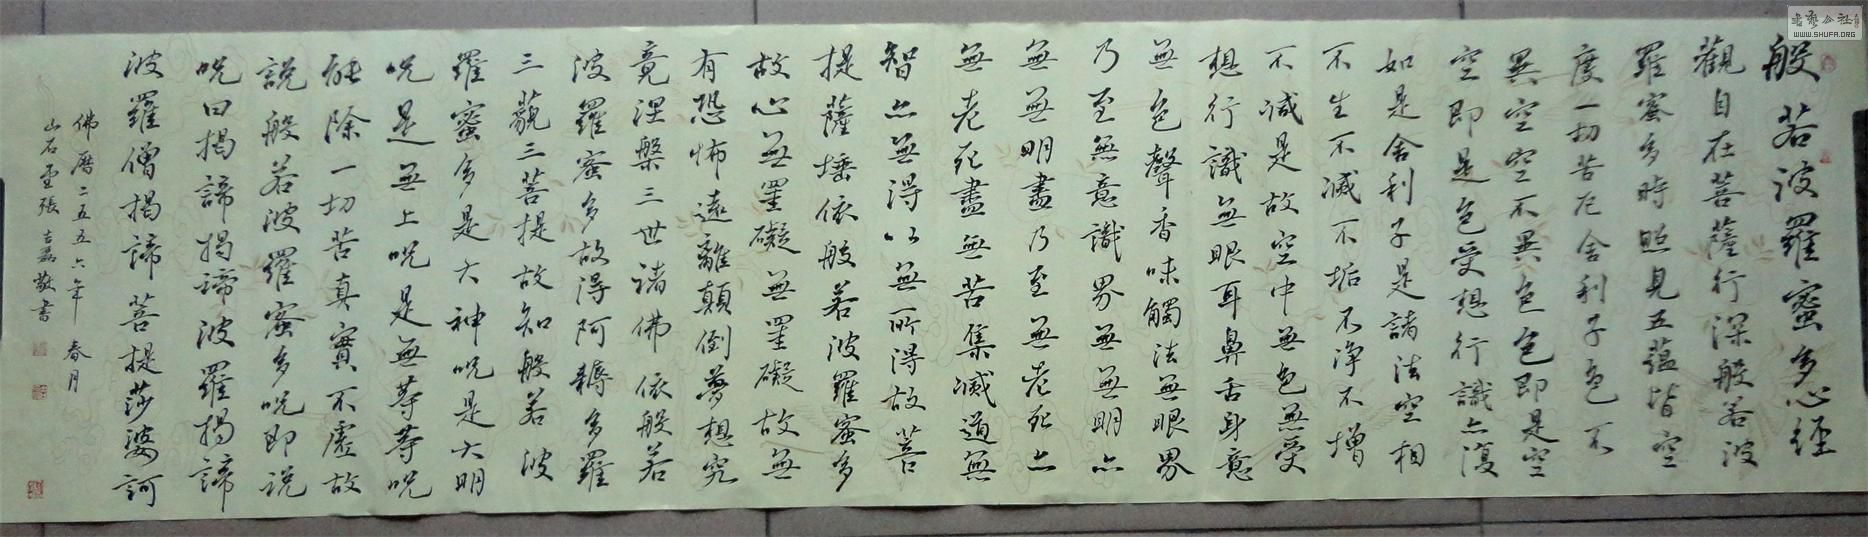 般若波羅蜜多心經
觀自在菩薩行深般若波
羅蜜多時照見五蘊皆空
度一切苦厄舍利子色不
異空空不異色色即是空
空即是色受想行識亦復
如是舍利子是諸法空相
不生不滅不垢不淨不增
不減是故空中無色無受
想行識無眼耳鼻舌身意
無色聲香味觸法無眼界
乃至無意識界無無明亦
無無明盡乃至無老死亦
無老死盡無苦集滅道無
智亦無得以無所得故菩
提薩埵依般若波羅蜜多
故心無罣礙無罣礙故無
有恐怖遠離顛倒夢想究
竟涅槃三世諸佛依般若
波羅蜜多故得阿耨多羅
三藐三菩提故知般若波
羅蜜多是大神咒是大明
咒是無上咒是無等等咒
能除一切苦真實不虛故
說般若波羅蜜多咒即说
咒曰揭諦揭諦波羅揭諦
波羅僧揭諦菩提莎婆訶
佛曆二五五六年 春月
山石 張 敬書
WWW.SHUFA.ORG